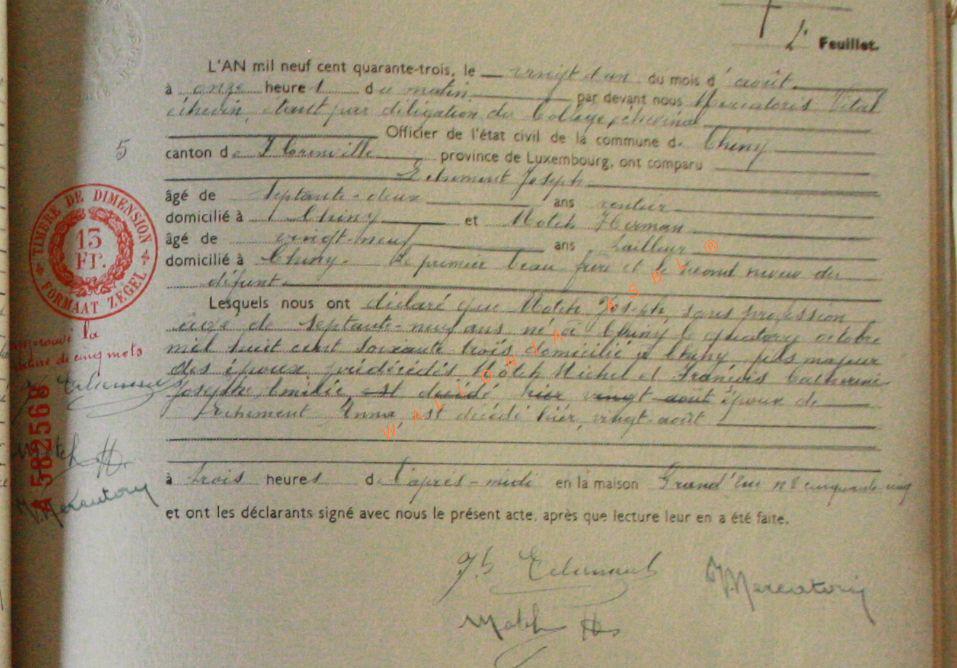 2e Feuillet.
L'AN mil neuf cent quarante-trois, le vingt d'un du mois d' août
à onze heures du matin par devant nous Mercatoris Vital
échevin, étant par délégation du Collège échevinal
Officier de l'état civil de la commune de Chiny
5
canton de Florenville province de Luxembourg, ont comparu
Joseph
âgé de Septante-deux ans rentier
domicilié à Chiny et Motch Herman
âgé de vingt-neuf ans tailleur
domicilié à Chiny. Le premier beau frère et le second neveu du
défunt.
Lesquels nous ont déclaré que Motch Joseph, sans profession
âgé de Septante-neuf ans né à Chiny le quatorze octobre
mil huit cent soixante-trois domicilié à Chiny fils majeur
des époux prédécédés Motch Michel et François Catherine
Joseph Emilie est décédé hier vingt août époux de
Anna, est décédé hier, vingt-août
à trois heures de l'après-midi en la maison Grand'rue n° cinquante-cinq
et ont les déclarants signé avec nous le présent acte, après que lecture leur en a été faite.
TIMBRE DE DIMENSION
13
FR.
FORMAAT ZEGEL
la
de cinq mots
A 582568
Motch H.
Motch H